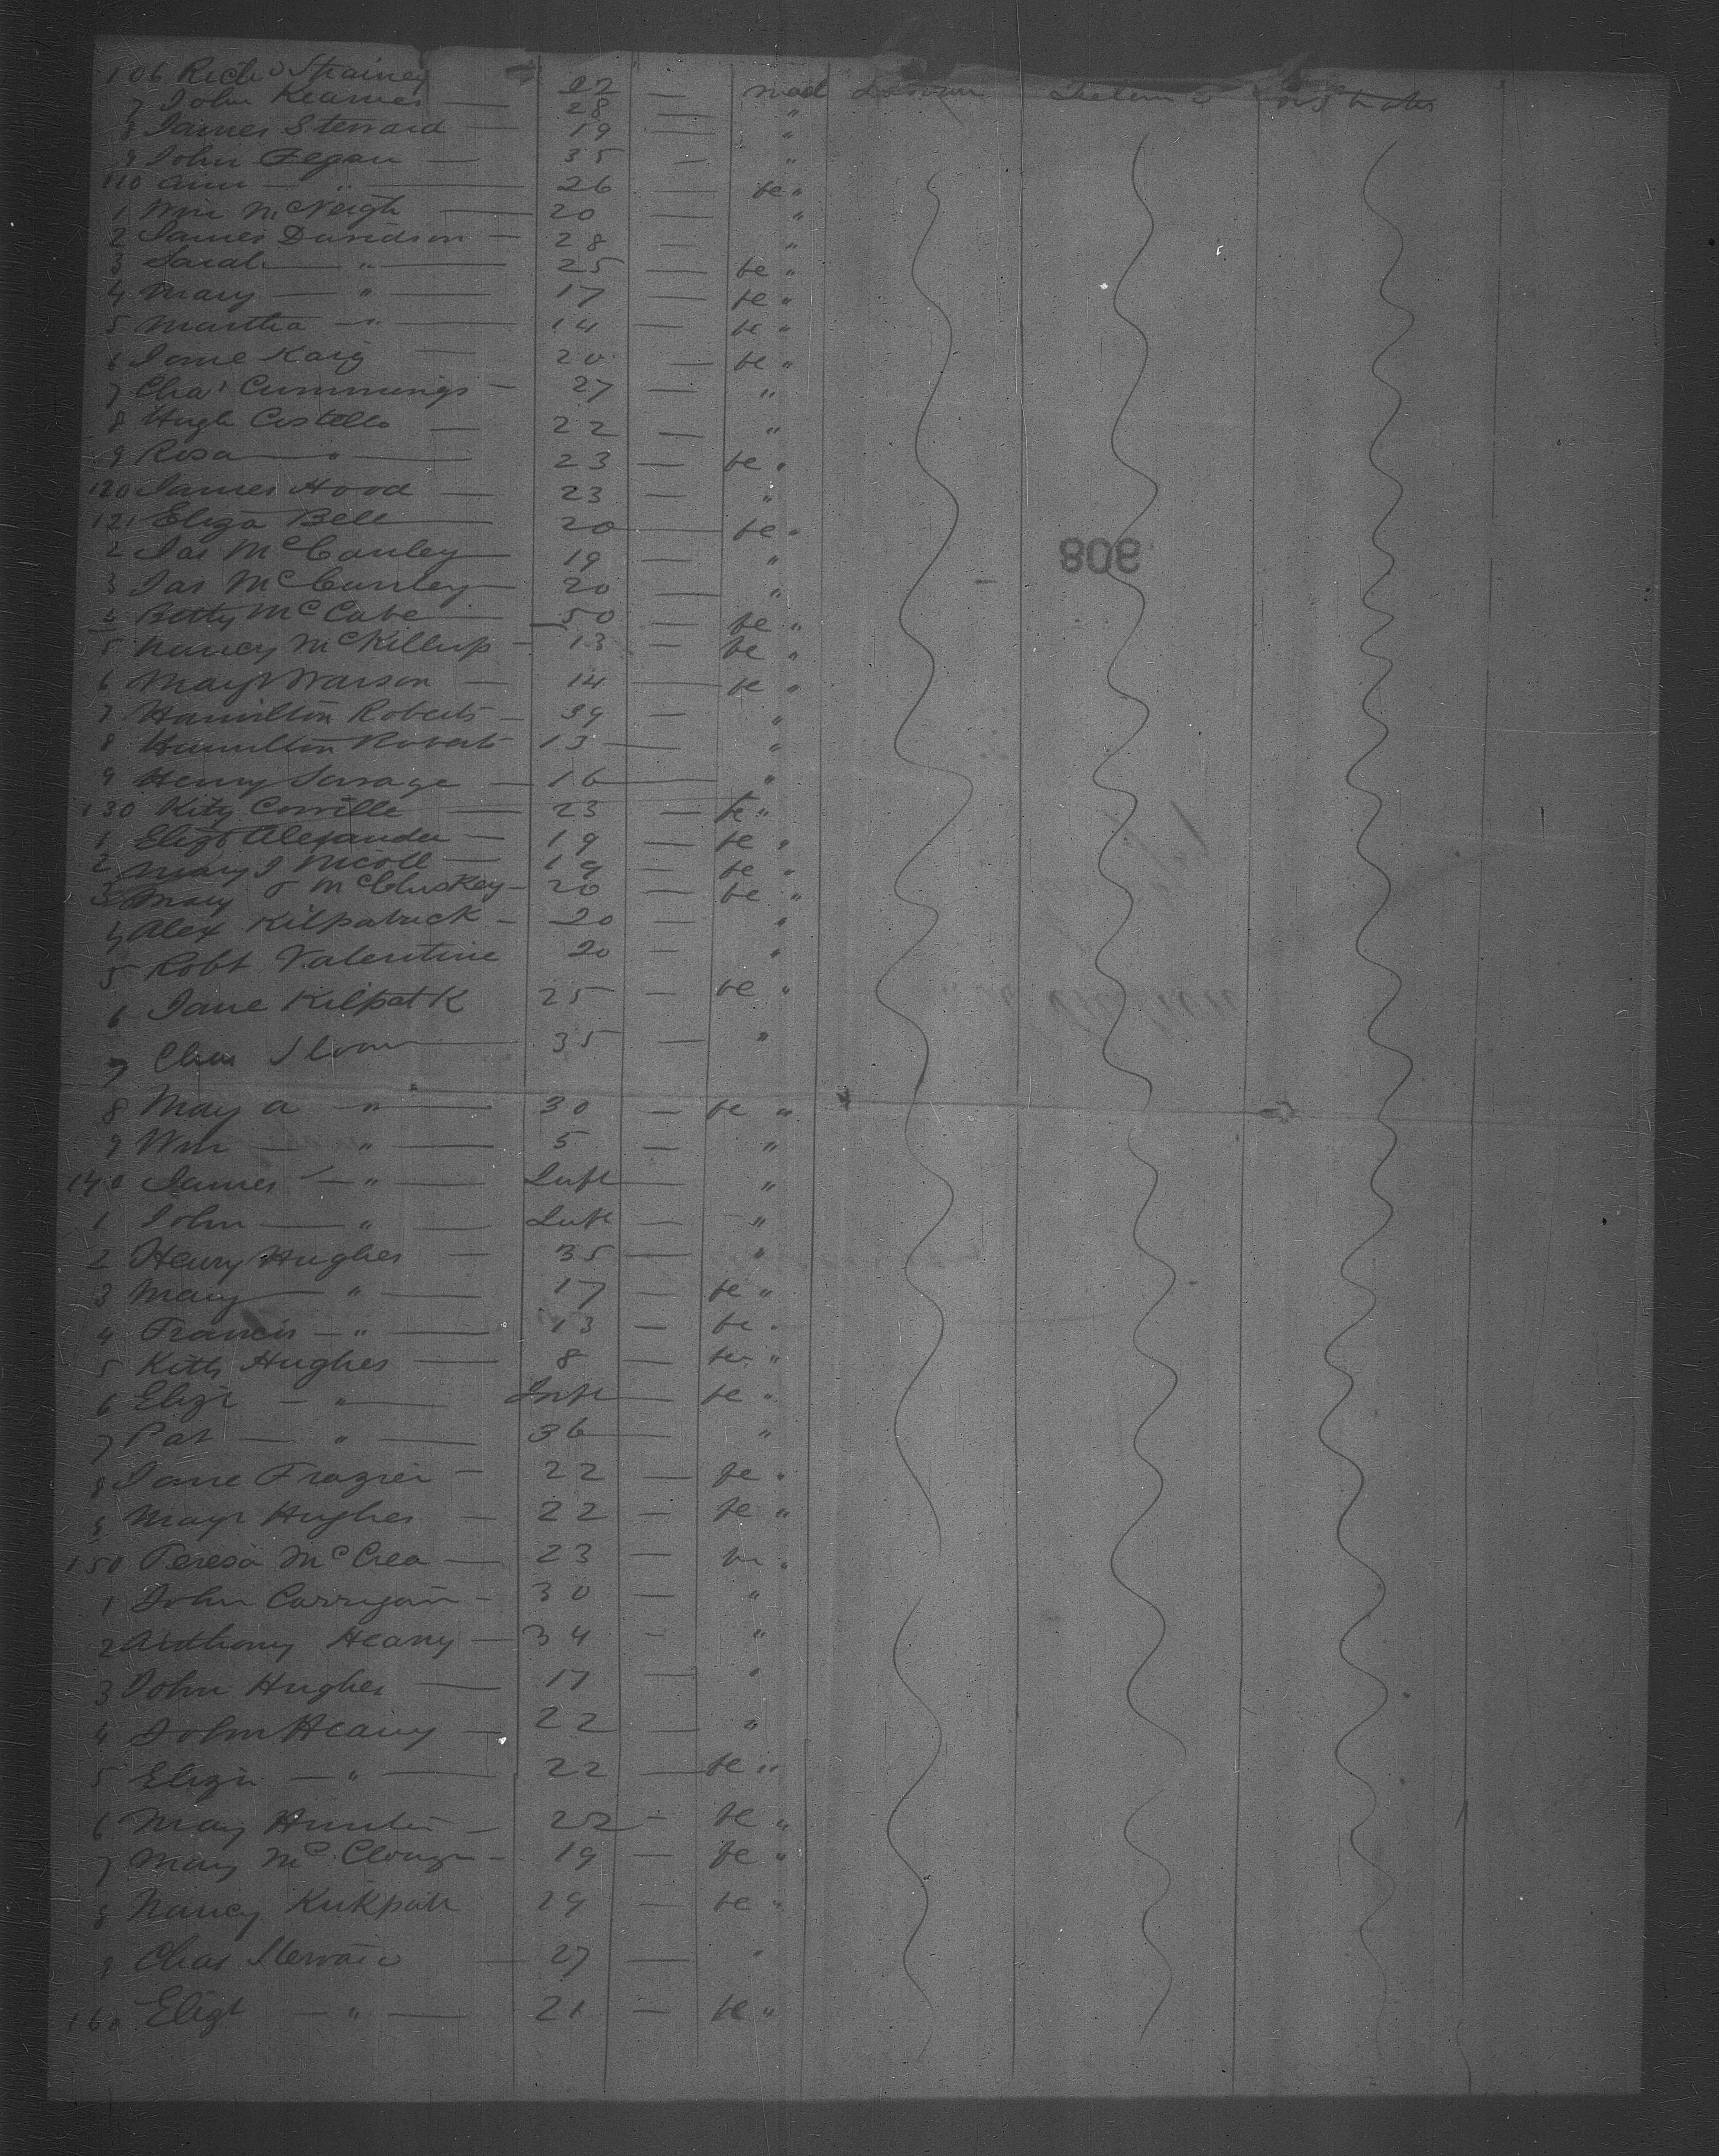 106 Richd Spainey — 22 — mad
7 John Kearnes — 28 — "
8 James Steward — 19 — "
9 John Fegan — 35 — "
110 Ann — " — 26 — fe "
1 Wm McVeigh — 20 — "
2 James Davidson — 28 — "
3 Sarah — " — 25 — fe "
4 Mary — " — 17 — fe "
5 Martha — " — 14 — fe "
6 Jane Kaig — 20 — fe "
7 Chas Cummings — 27 — "
8 Hugh Costello — 22 — "
9 Rosa — " — 23 — fe "
120 James Hood — 23 — "
121 Eliza Bell — 20 — fe "
2 Jas McCauley — 19 — "
3 Jas McCauley — 20 — "
4 Betty McCabe — 50 — fe "
5 Nancy McKillup — 13 — fe "
6 Mary Warson — 14 — fe "
7 Hamilton Roberts — 39 — "
8 Hamilton Roberts 13 — "
9 Henry Savage — 16 — "
130 Kity Conville — 23 — fe "
1 Elizt Alexander — 19 — fe "
2 Mary J Nicoll — 19 — fe "
3 Mary McCluskey — 20 — fe "
4 Alex Kilpatrick — 20 — "
5 Robt Valentine 20 — "
6 Jane Kilpatk 25 — fe "
7 Chas Sloan — 35 — "
8 Mary A — " — 30 — fe "
9 Wm — " — 5 — "
140 James — " — Inft — "
1 John — " — Inft — "
2 Henry Hughes — 35 — "
3 Mary — " — 17 — fe "
4 Francis — " — 13 — fe "
5 Kitty Hughes — 8 — fe "
6 Eliza — " — Inft — fe "
7 Pat — " — 36 — "
8 Jane Frazier — 22 — fe "
9 Mary Hughes — 22 — fe "
150 Teresa McCrea — 23 — fe "
1 John Carrigan — 30 — "
2 Anthony Heany — 34 — "
3 John Hughes — 17 — "
4 John Heany — 22 — "
5 Eliza — " — 22 — fe "
6 Mary Hunter — 22 — fe "
7 Mary — 19 — fe "
8 Nancy Kirkpatk 29 — fe "
9 Chas — 27 — "
160 Elizt — " — 21 — fe "
908